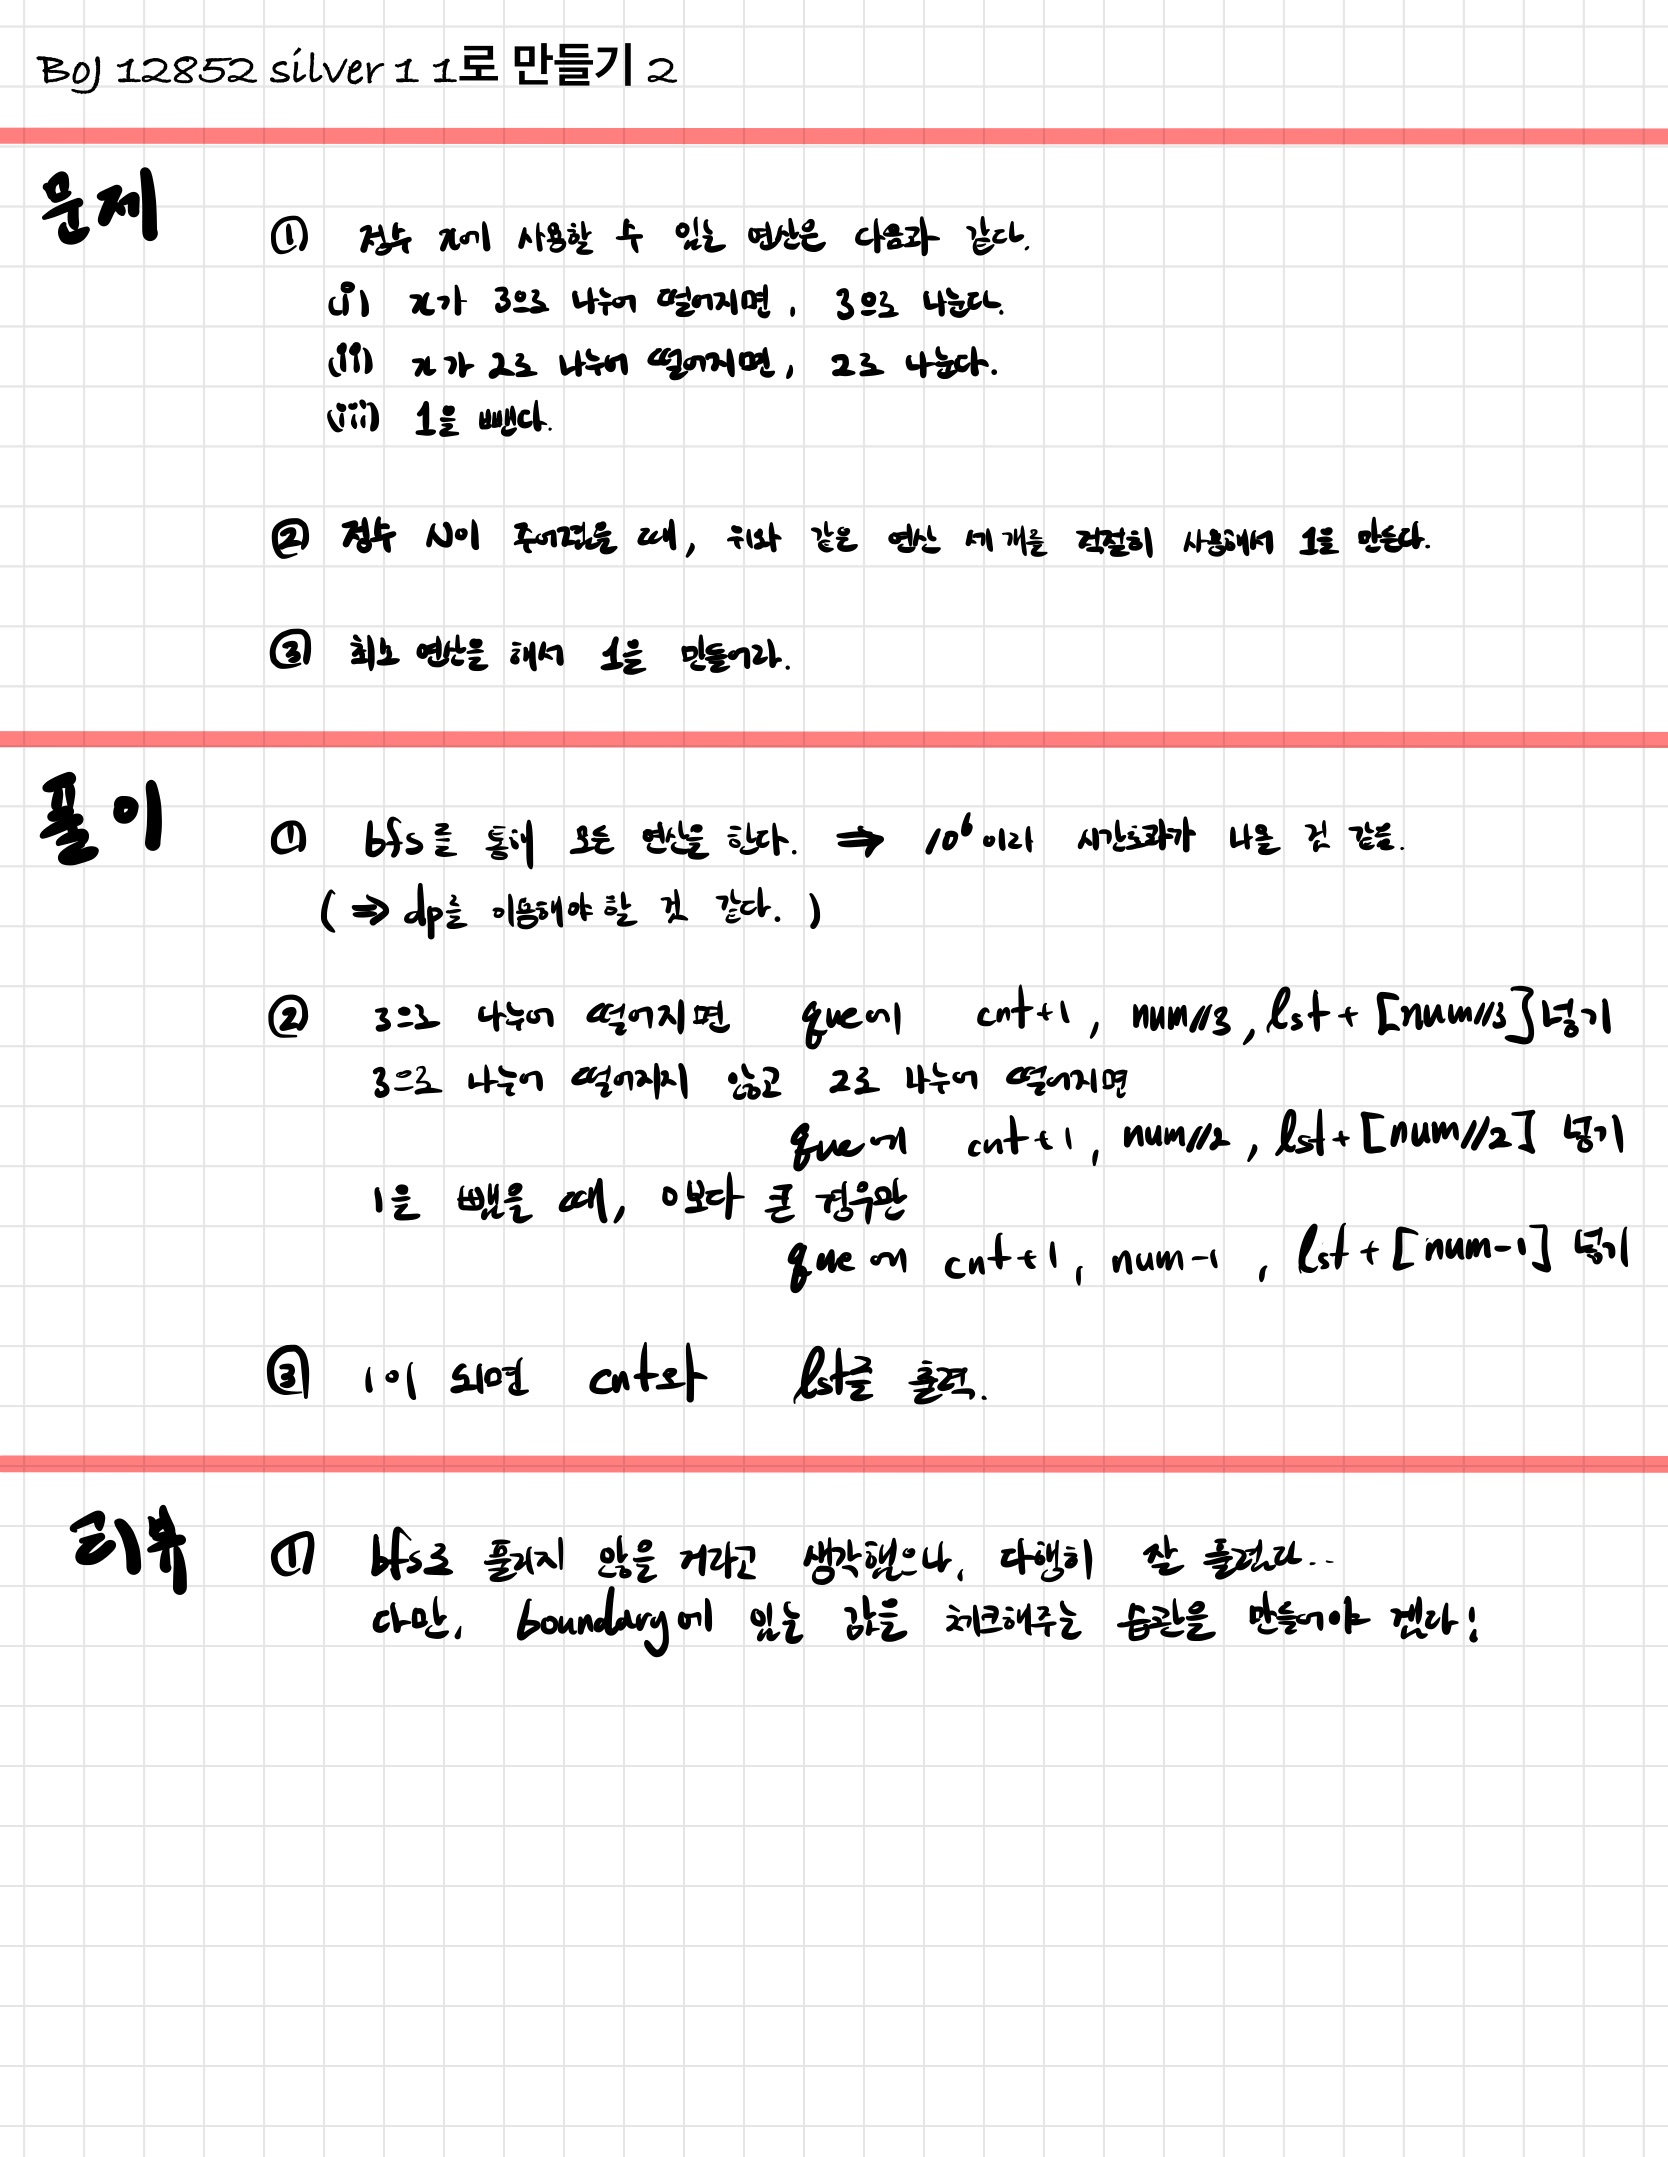 BOJ 12852 silver 1 1로 만들기 2
문제
① 정수 x에 사용할 수 있는 연산은 다음과 같다.
(i) x가 3으로 나누어 떨어지면, 3으로 나눈다.
(ii) x가 2로 나누어 떨어지면, 2로 나눈다.
(iii) 1을 뺀다.
② 정수 N이 주어졌을 때, 위와 같은 연산 세 개를 적절히 사용해서 1을 만든다.
③ 최소 연산을 해서 1을 만들어라.
풀이
① bfs를 통해 모든 연산을 한다. ⇒ 10⁶이라 시간초과가 나올 것 같음.
(⇒ dp를 이용해야 할 것 같다.)
② 3으로 나누어 떨어지면 que에 cnt+1, num//3, lst + [num//3] 넣기
3으로 나누어 떨어지지 않고 2로 나누어 떨어지면
que에 cnt+1, num//2, lst + [num//2] 넣기
1을 뺐을 때, 0보다 큰 경우만
que에 cnt+1, num-1, lst + [num-1] 넣기
③ 1이 되면 cnt와 lst를 출력.
리뷰
① bfs로 풀리지 않을 거라고 생각했으나, 다행히 잘 풀렸다..
다만, boundary에 있는 값을 체크해주는 습관을 만들어야 겠다!